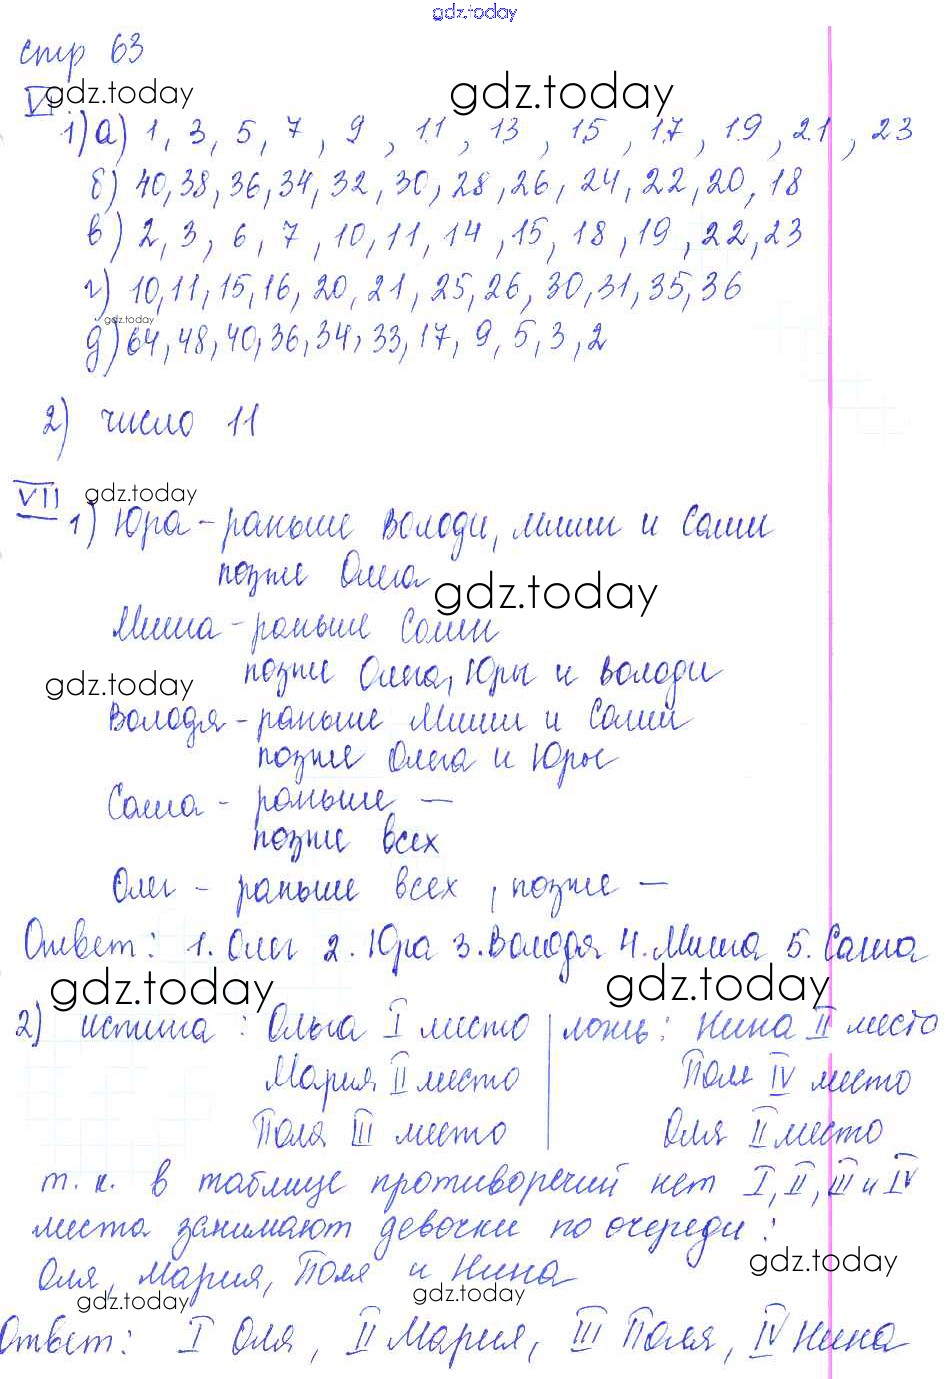 gdz.today
стр 63
gdz.today gdz.today
VI
1) а) 1, 3, 5, 7, 9, 11, 13, 15, 17, 19, 21, 23
б) 40, 38, 36, 34, 32, 30, 28, 26, 24, 22, 20, 18
в) 2, 3, 6, 7, 10, 11, 14, 15, 18, 19, 22, 23
г) 10, 11, 15, 16, 20, 21, 25, 26, 30, 31, 35, 36
gdz.today
д) 64, 48, 40, 36, 34, 33, 17, 9, 5, 3, 2
2) число 11
VII gdz.today
1) Юра - раньше Володи, Миши и Саши
позже Олега
gdz.today
Миша - раньше Саши
позже Олега, Юры и Володи
gdz.today
Володя - раньше Миши и Саши
позже Олега и Юры
Саша - раньше —
позже всех
Олег - раньше всех, позже —
Ответ: 1. Олег 2. Юра 3. Володя 4. Миша 5. Саша
gdz.today gdz.today
2) истина: Ольга I место | ложь: Нина II место
Мария II место Поля IV место
Поля III место Оля II место
т. к. в таблице противоречий нет I, II, III и IV
места занимают девочки по очереди:
gdz.today
Оля, Мария, Поля и Нина
gdz.today gdz.today
Ответ: I Оля, II Мария, III Поля, IV Нина